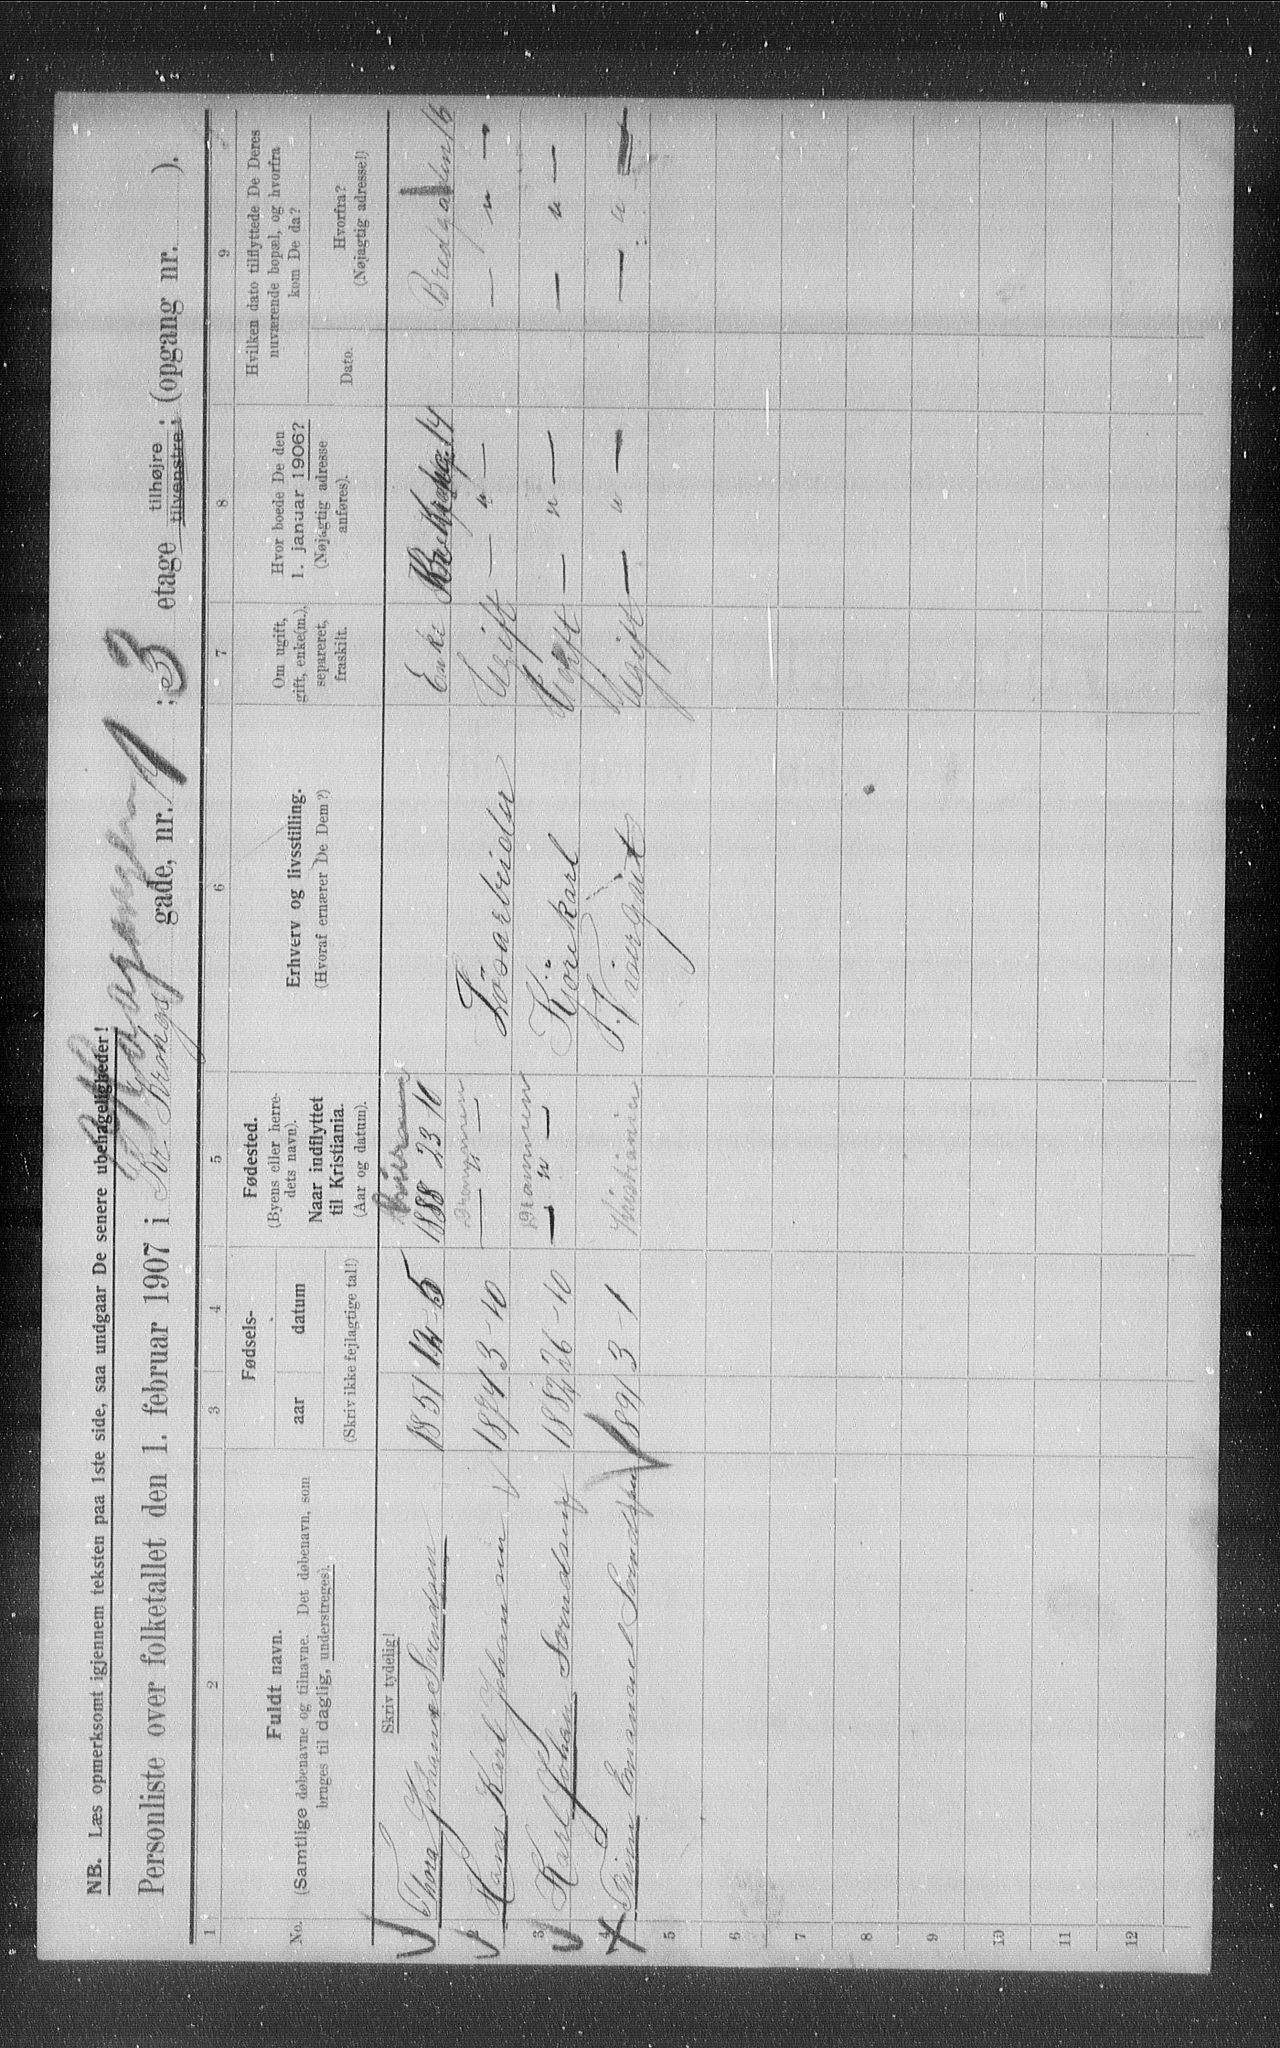 NB. Læs opmerksomt igjennem teksten paa 1ste side, saa undgaar De senere ubehageligheder!
Personliste over folketallet den 1. februar 1907 i Kr. Krohgs gade, nr. 1 ; 3 etage tilhøjre ; tilvenstre ; (opgang nr. ).
1 2 3 4 5 6 7 8 9
No.
Fuldt navn.
(Samtlige døbenavne og tilnavne. Det døbenavn, som
bruges til daglig, understreges).
Fødsels-
aar datum
(Skriv ikke fejlagtige tal!)
Fødested.
(Byens eller herre-
dets navn).
Naar indflyttet
til Kristiania.
(Aar og datum).
Erhverv og livsstilling.
(Hvoraf ernærer De Dem?)
Om ugift,
gift, enke(m.),
separeret,
fraskilt.
Hvor boede De den
1. januar 1906?
(Nøjagtig adresse
anføres).
Hvilken dato tilflyttede De Deres
nuværende bopæl, og hvorfra
kom De da?
Dato.
Hvorfra?
(Nøjagtig adresse!)
Skriv tydelig!
Thora Johanne Svendsen 1851 12-5 1888 23 10 Enke Bredgaden 16
2 Hans Karl Johansen 1874 3-10 Drammen — " — Løsarbeider Ugift — " — — " —
3 Karl Johan Svendsen 1882 26-10 Drammen — " — Kjørekarl Ugift — " — — " —
4 Finn Emanuel Svendsen 1891 3 1 Kristiania Visergut Ugift — " — — " —
5
6
7
8
9
10
11
12